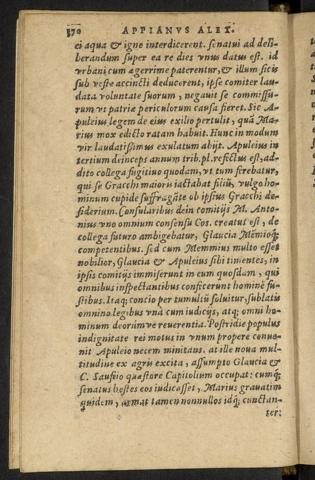 370 APPIANVS ALEX.
ei aqua & igne interdicerent. senatui ad deli-
berandum super ea re dies vnus datus est. id
vrbani cum ægerrime paterentur, & illum sicis
sub veste accincti deducerent, ipse comiter lau-
data voluntate suorum, negauit se commissu-
rum vt patriæ periculorum causa fieret. Sic A-
puleius legem de eius exilio pertulit, quã Ma-
rius mox edicto ratam habuit. Hunc in modum
vir laudatissimus exulatum abijt. Apuleius in
tertium deinceps annum trib. pl. refectus est, ad-
dito collega fugitiuo quodam, vt tum ferebatur,
qui se Gracchi maioris iactabat filiũ, vulgo ho-
minum cupide suffragãte ob ipsius Gracchi de-
siderium. Consularibus dein comitijs M. Anto-
nius vno omnium consensu Cos. creatus est, de
collega futuro ambigebatur, Glaucia Mẽmioq́;
competentibus. sed cum Memmius multo esset
nobilior, Glaucia & Apuleius sibi timentes, in
ipsis comitijs immiserunt in eum quosdam, qui
omnibus inspectantibus conficerunt hominẽ fu-
stibus. Itaq; concio per tumultũ soluitur, sublatis
omnino legibus vnà cum iudicijs, atq; omni ho-
minum deorúmve reuerentia. Postridie populus
indignitate rei motus in vnum propere conue-
nit Apuleio necem minitans. at ille noua mul-
titudine ex agris excita, assumpto Glaucia &
C. Saufeio quæstore Capitolium occupat: cumq́;
senatus hostes eos iudicasset, Marius grauatim
quidem, armat tamen nonnullos idq́; cunctan-
ter: